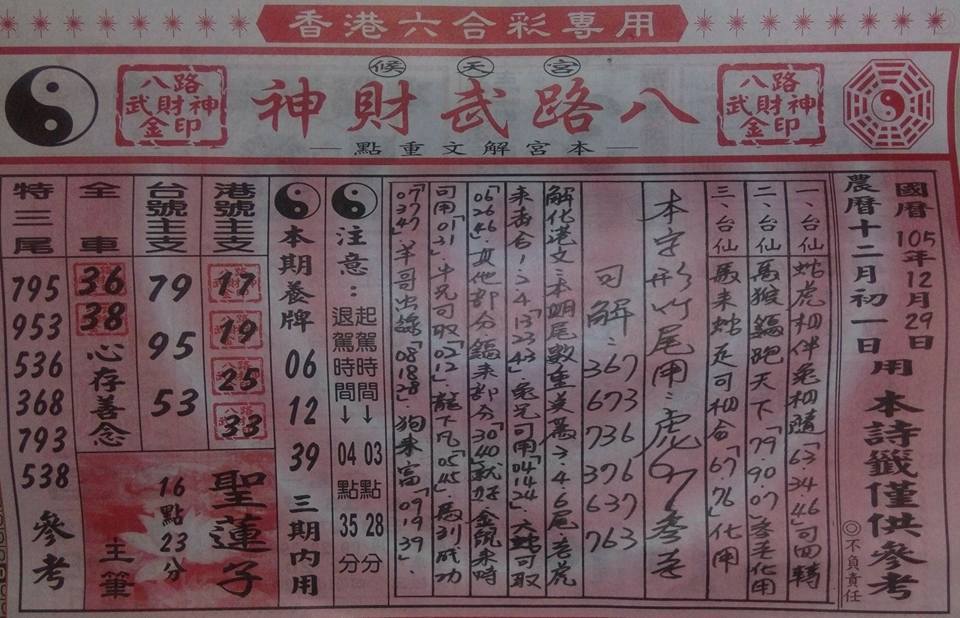 香港六合彩專用
候天宮
八路武財神
八路
武財神
金印
八路
武財神
金印
本宮解文重點
國曆105年12月29日
農曆十二月初一日
用
本詩籤僅供參考
◎不負責任
一、台仙 蛇虎相伴兔相隨「63.34.46」可四轉
二、台仙 馬猴鷄跑天下「79.90.07」參考化用
三、台仙 馬來蛇足可相合「67.76」化用
本字形竹尾用:虎67參考
可解:367
673
736
376
637
763
解化港文:本期尾數重美為2.4.6尾
來去合1.2.4「13.23.43」兔兄可用「04.14.24」
「06.26.46」其他部分鷄來部分「30.40」
可用「01.21」牛兄可取「02.12」龍下凡「05.45」馬到成功
「07.47」羊哥出線「08.18.28」狗來富「09.19.39」
注意:
起駕時間↓03點28分
退駕時間↓04點35分
本期養牌
06
12
39
三期內用
港號主支
17
19
25
33
台號主支
79
95
53
全車
36
38
心存善念
特三尾
795
953
536
368
793
538
參考
聖蓮子
16點23分
主筆